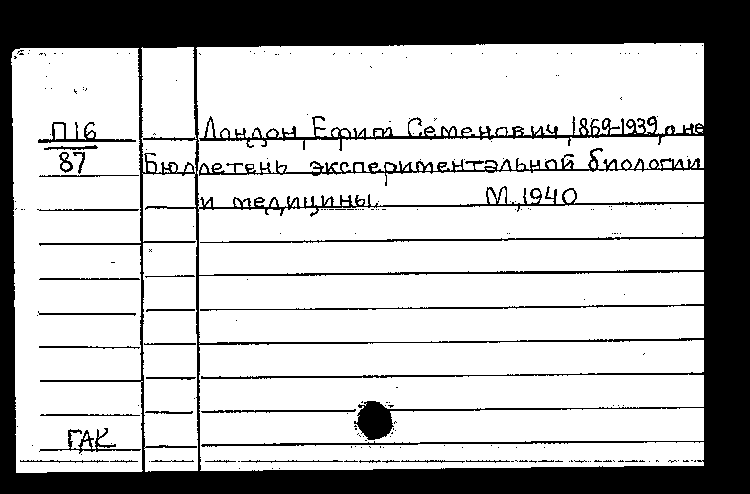 П16
87
Лондон, Ефим Семенович, 1869-1939, о не
Бюллетень экспериментальной биологии
и медицины. М., 1940
ГАК